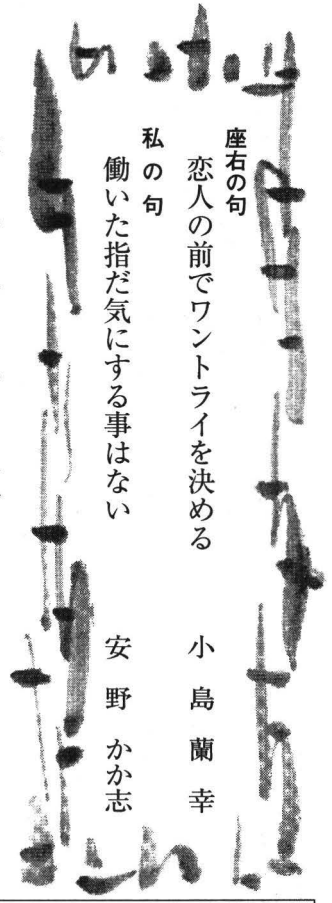 座右の句
恋人の前でワントライを決める 小島蘭幸
私の句
働いた指だ気にする事はない 安野かか志